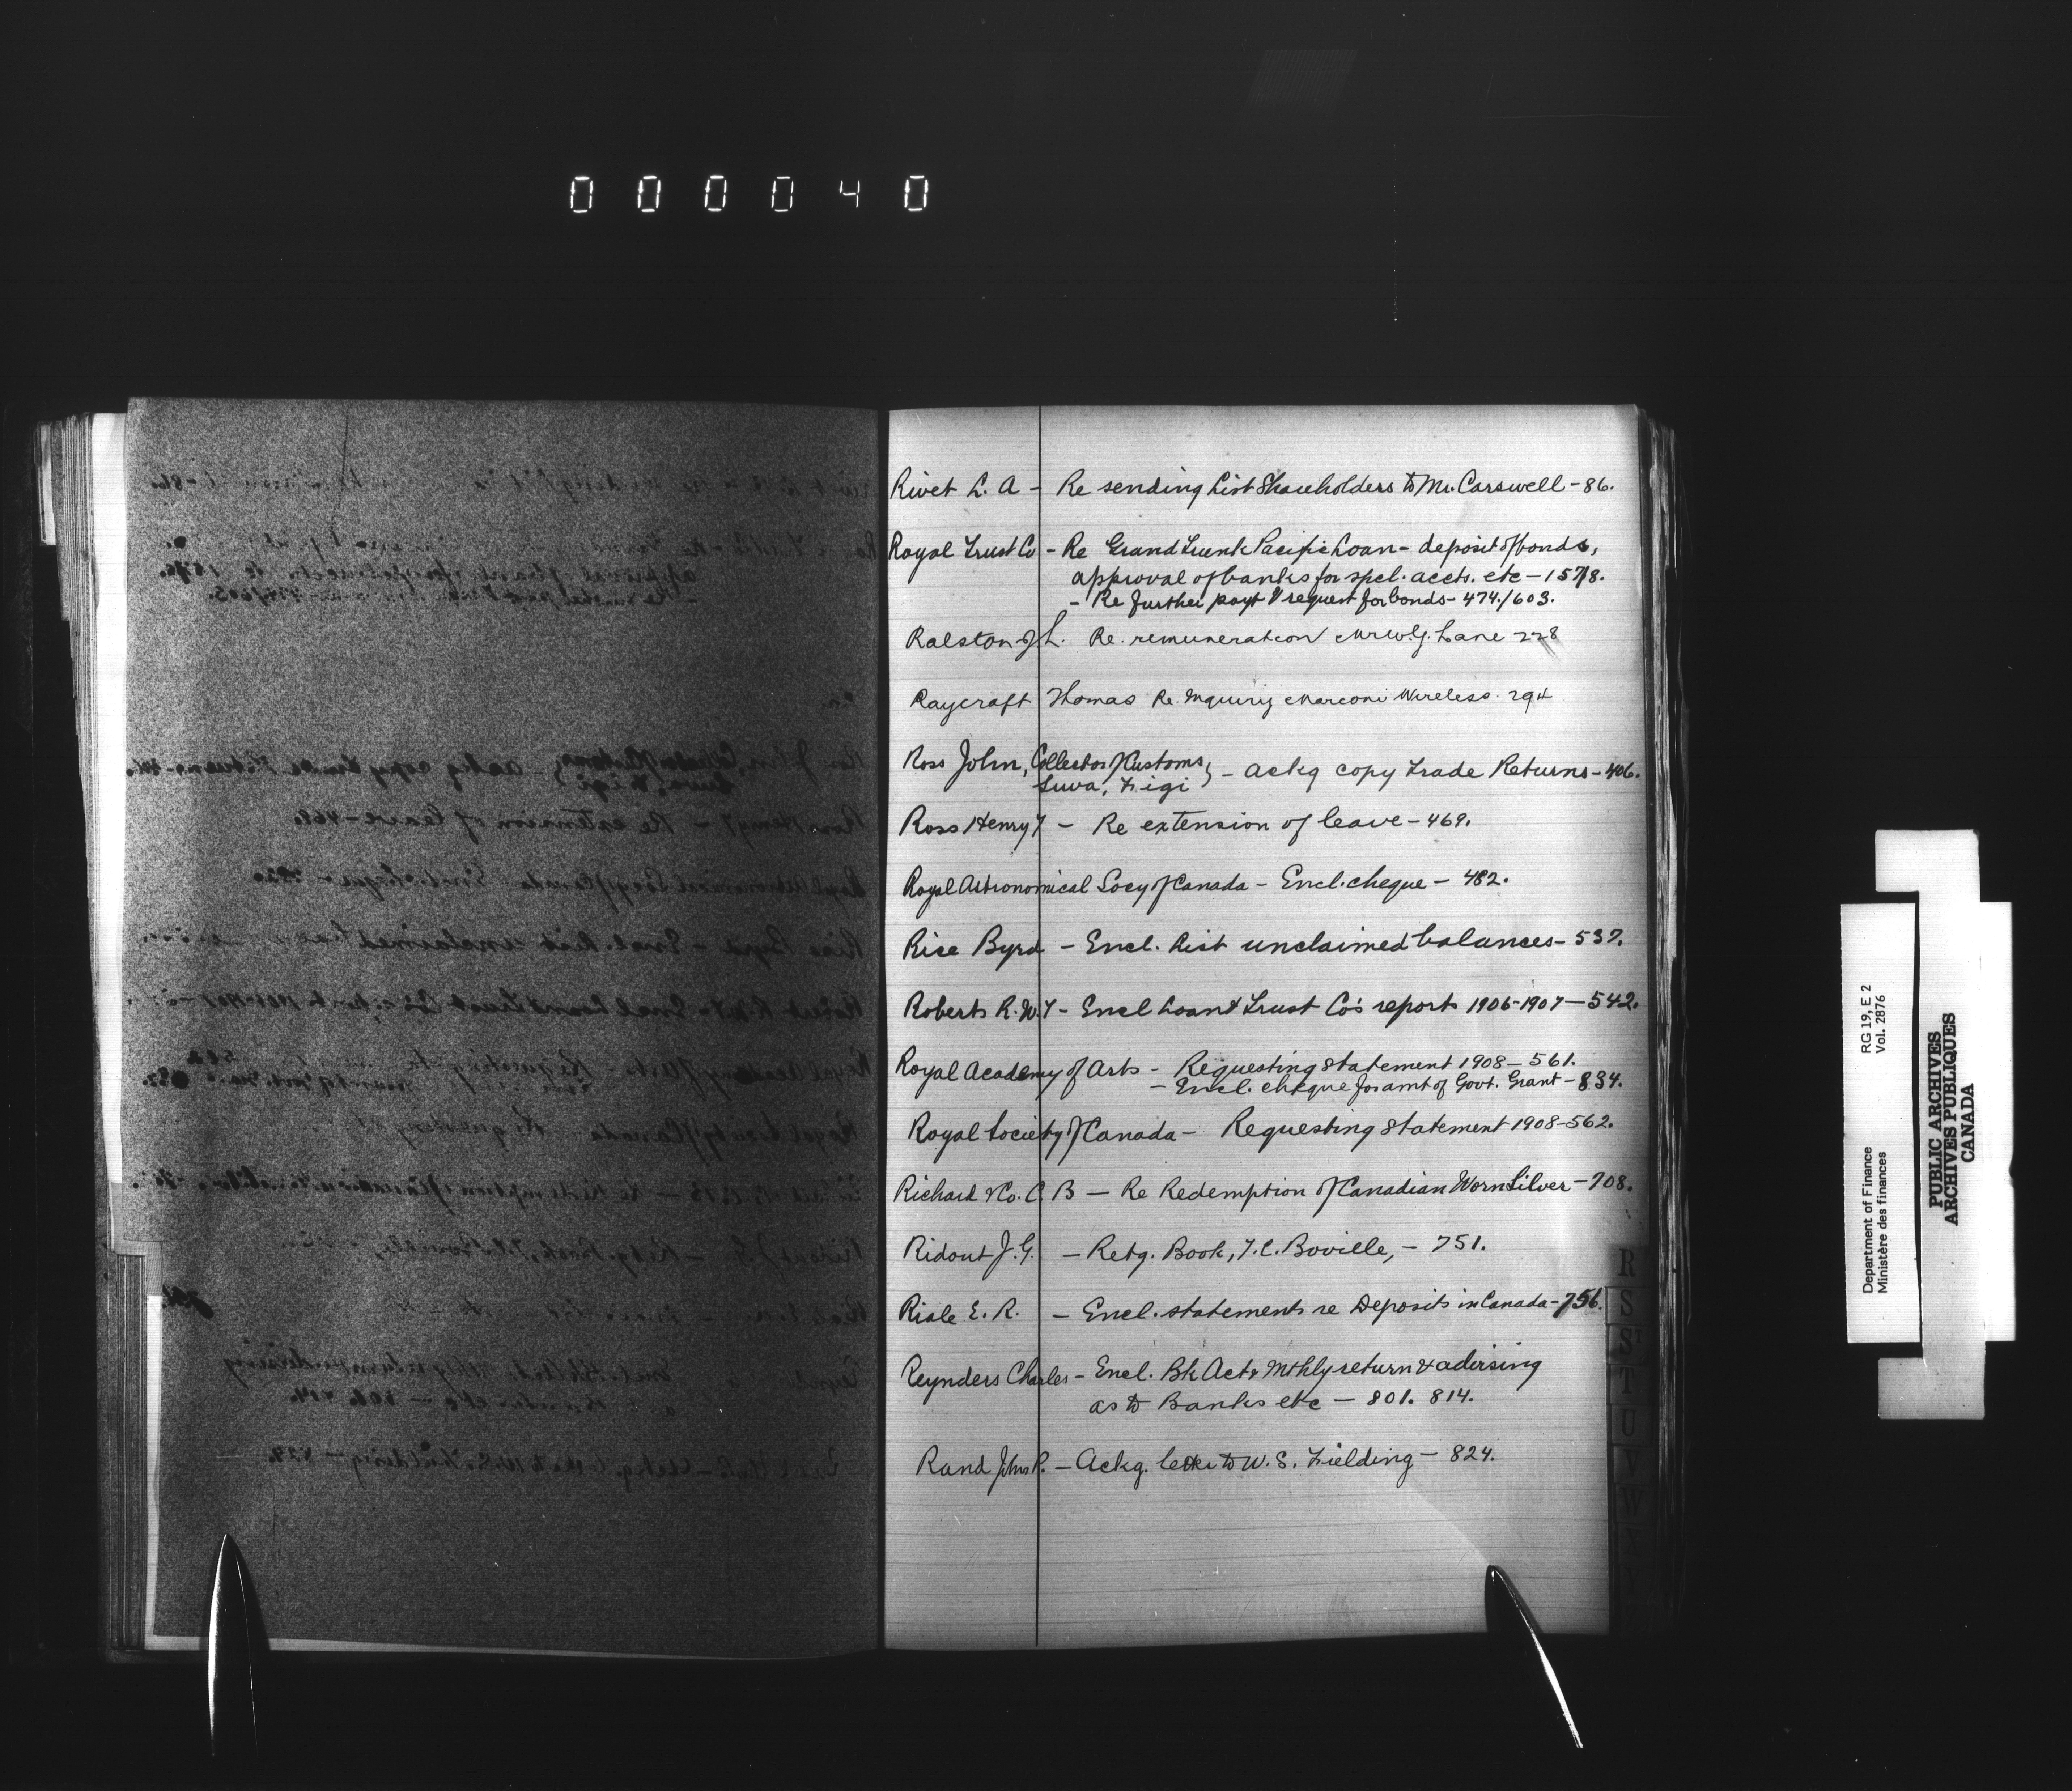 000040
Rivet L. A - Re sending List Shareholders to Mr. Carswell - 86.
Royal Trust Co - Re Grand Trunk Pacific Loan - deposit of bonds,
approval of banks for spcl. accts. etc - 157/8.
- Re further payt & request for bonds - 474/603.
Ralston J. L. Re. remuneration Mr W.J. Lane 228
Raycraft Thomas Re. Inquiry Marconi Wireless. 294
Ross John, Collector of Customs,
Suva, Figi } - ackg copy Trade Returns - 406.
Ross Henry T - Re extension of leave - 469.
Royal Astronomical Socy of Canada - Encl. cheque - 482.
Rice Byrd - Encl. List unclaimed balances - 537.
Roberts R. W. T - Encl Loan & Trust Co's reports 1906-1907 - 542.
Royal Academy of Arts - Requesting Statement 1908 - 561.
- Encl. cheque for amt of Govt. Grant - 834.
Royal Society of Canada - Requesting Statement 1908 - 562.
Richard & Co. C. B - Re Redemption of Canadian Worn Silver - 708.
Ridout J. G. - Retg. Book, T. C. Boville, - 751.
Riale E. R. - Encl. statements re Deposits in Canada - 756.
Reynders Charles - Encl. Bk Act & Mthly return & advising
as to Banks etc - 801. 814.
Rand John R. - Ackg. letter to W. S. Fielding - 824.
R
S
ST
T
U
V
W
X
Department of Finance
Ministère des finances
RG 19, E 2
Vol. 2876
PUBLIC ARCHIVES
ARCHIVES PUBLIQUES
CANADA